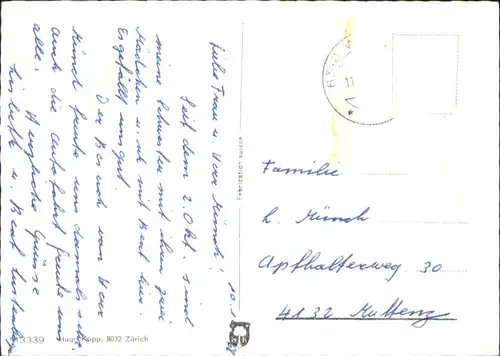 10.1
Liebe Frau u. Herr Münch!
Seit dem 2. Okt. sind
meine Schwester mit ihren zwei
Mädchen u. ich mit Beat hier.
Es gefällt uns gut.
Der Besuch von Herr
Münch freute uns damals sehr,
auch die Autofahrt freute uns
alle. Herzliche Grüsse
u. Beat
Familie
H. Münch
Apfhalterweg 30
4132 Muttenz
Fabrication suisse
3339 Hugo Kopp, 8032 Zürich